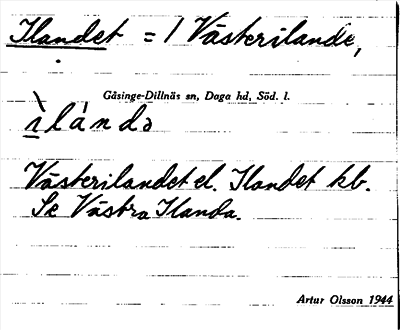 Ilandet = / Västerilande,
Gåsinge-Dillnäs sn, Daga hd, Söd. l.
ìlándə
Västerilandet el. Ilandet kb.
Se Västra Ilanda.
Artur Olsson 1944